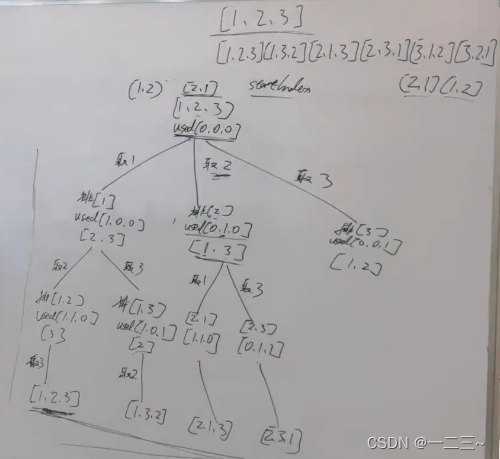 [1.2.3]
[1.2.3](1.3.2][2.1.3][2.3.1][3.1.2][3.2.1]
(1.2) [2.1] startIndex (2.1)(1.2]
[1.2.3]
used[0.0.0]
取1 取2 取3
排[1] 排[2] 排[3]
used[1.0.0] used[0.1.0] used[0.0.1]
[2.3] [1.3] [1.2]
取2 取3 取1 取3
排[1.2] 排[1.3] [2.1] [2.3]
used[1.1.0] used[1.0.1] [1.1.0] [0.1.1]
[3] [2]
取3 取2
[1.2.3] [1.3.2] [2.1.3] [2.3.1]
CSDN @一二三~